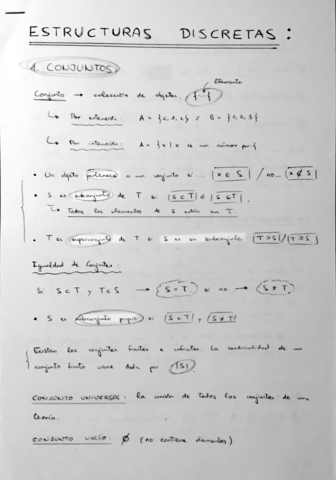 ESTRUCTURAS DISCRETAS:
1. CONJUNTOS
Elemento
Conjunto → colección de objetos. {...}
↳ Por extensión: A = {c, 1, 2} ó B = {1, 2, 3}
↳ Por intensión: A = {x | x es un número par}
• Un objeto pertenece a un conjunto si... x ∈ S / no... x ∉ S
• S es subconjunto de T si S ⊂ T ó S ⊆ T.
↳ Todos los elementos de S están en T.
• T es superconjunto de T si S es un subconjunto T ⊃ S / T ⊇ S
Igualdad de Conjuntos:
Si S ⊂ T y T ⊂ S → S = T. si no → S ≠ T.
• S es subconjunto propio si S ⊂ T y S ≠ T
Existen los conjuntos finitos e infinitos. La cardinalidad de un
conjunto finito viene dada por |S|
CONJUNTO UNIVERSAL: la unión de todos los conjuntos de una
teoría.
CONJUNTO VACÍO: ∅ (no contiene elementos)